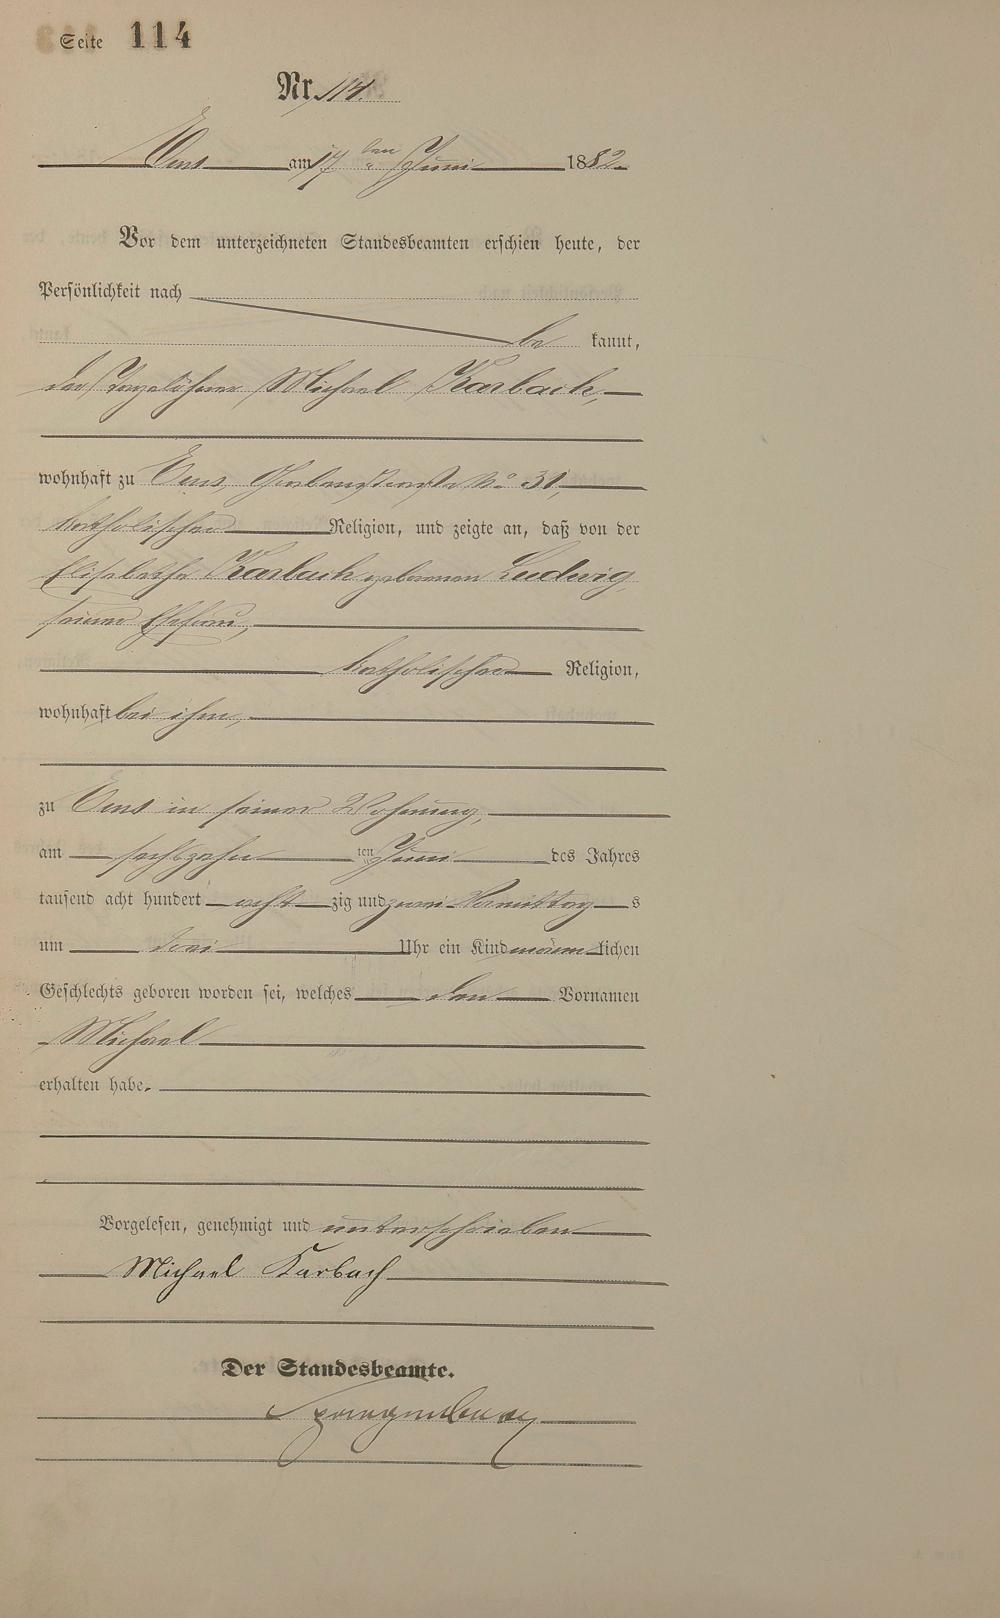 Seite 114
Nr. 114.
Ems am 17 ten Juni 1882.
Vor dem unterzeichneten Standesbeamten erschien heute, der
Persönlichkeit nach
be kannt,
der Tagelöhner Michael Karbach,
wohnhaft zu Ems, No 31,
katholischer Religion, und zeigte an, daß von der
Elisabetha Karbach geborenen Ludwig,
seiner Ehefrau,
katholischer Religion,
wohnhaft bei ihm,
zu Ems in seiner Wohnung,
am sechszehn ten Juni des Jahres
tausend acht hundert acht zig und zwei Vormittag s
um drei Uhr ein Kind männ lichen
Geschlechts geboren worden sei, welches den Vornamen
Michael
erhalten habe.
Vorgelesen, genehmigt und unterschrieben
Michael Karbach
Der Standesbeamte.